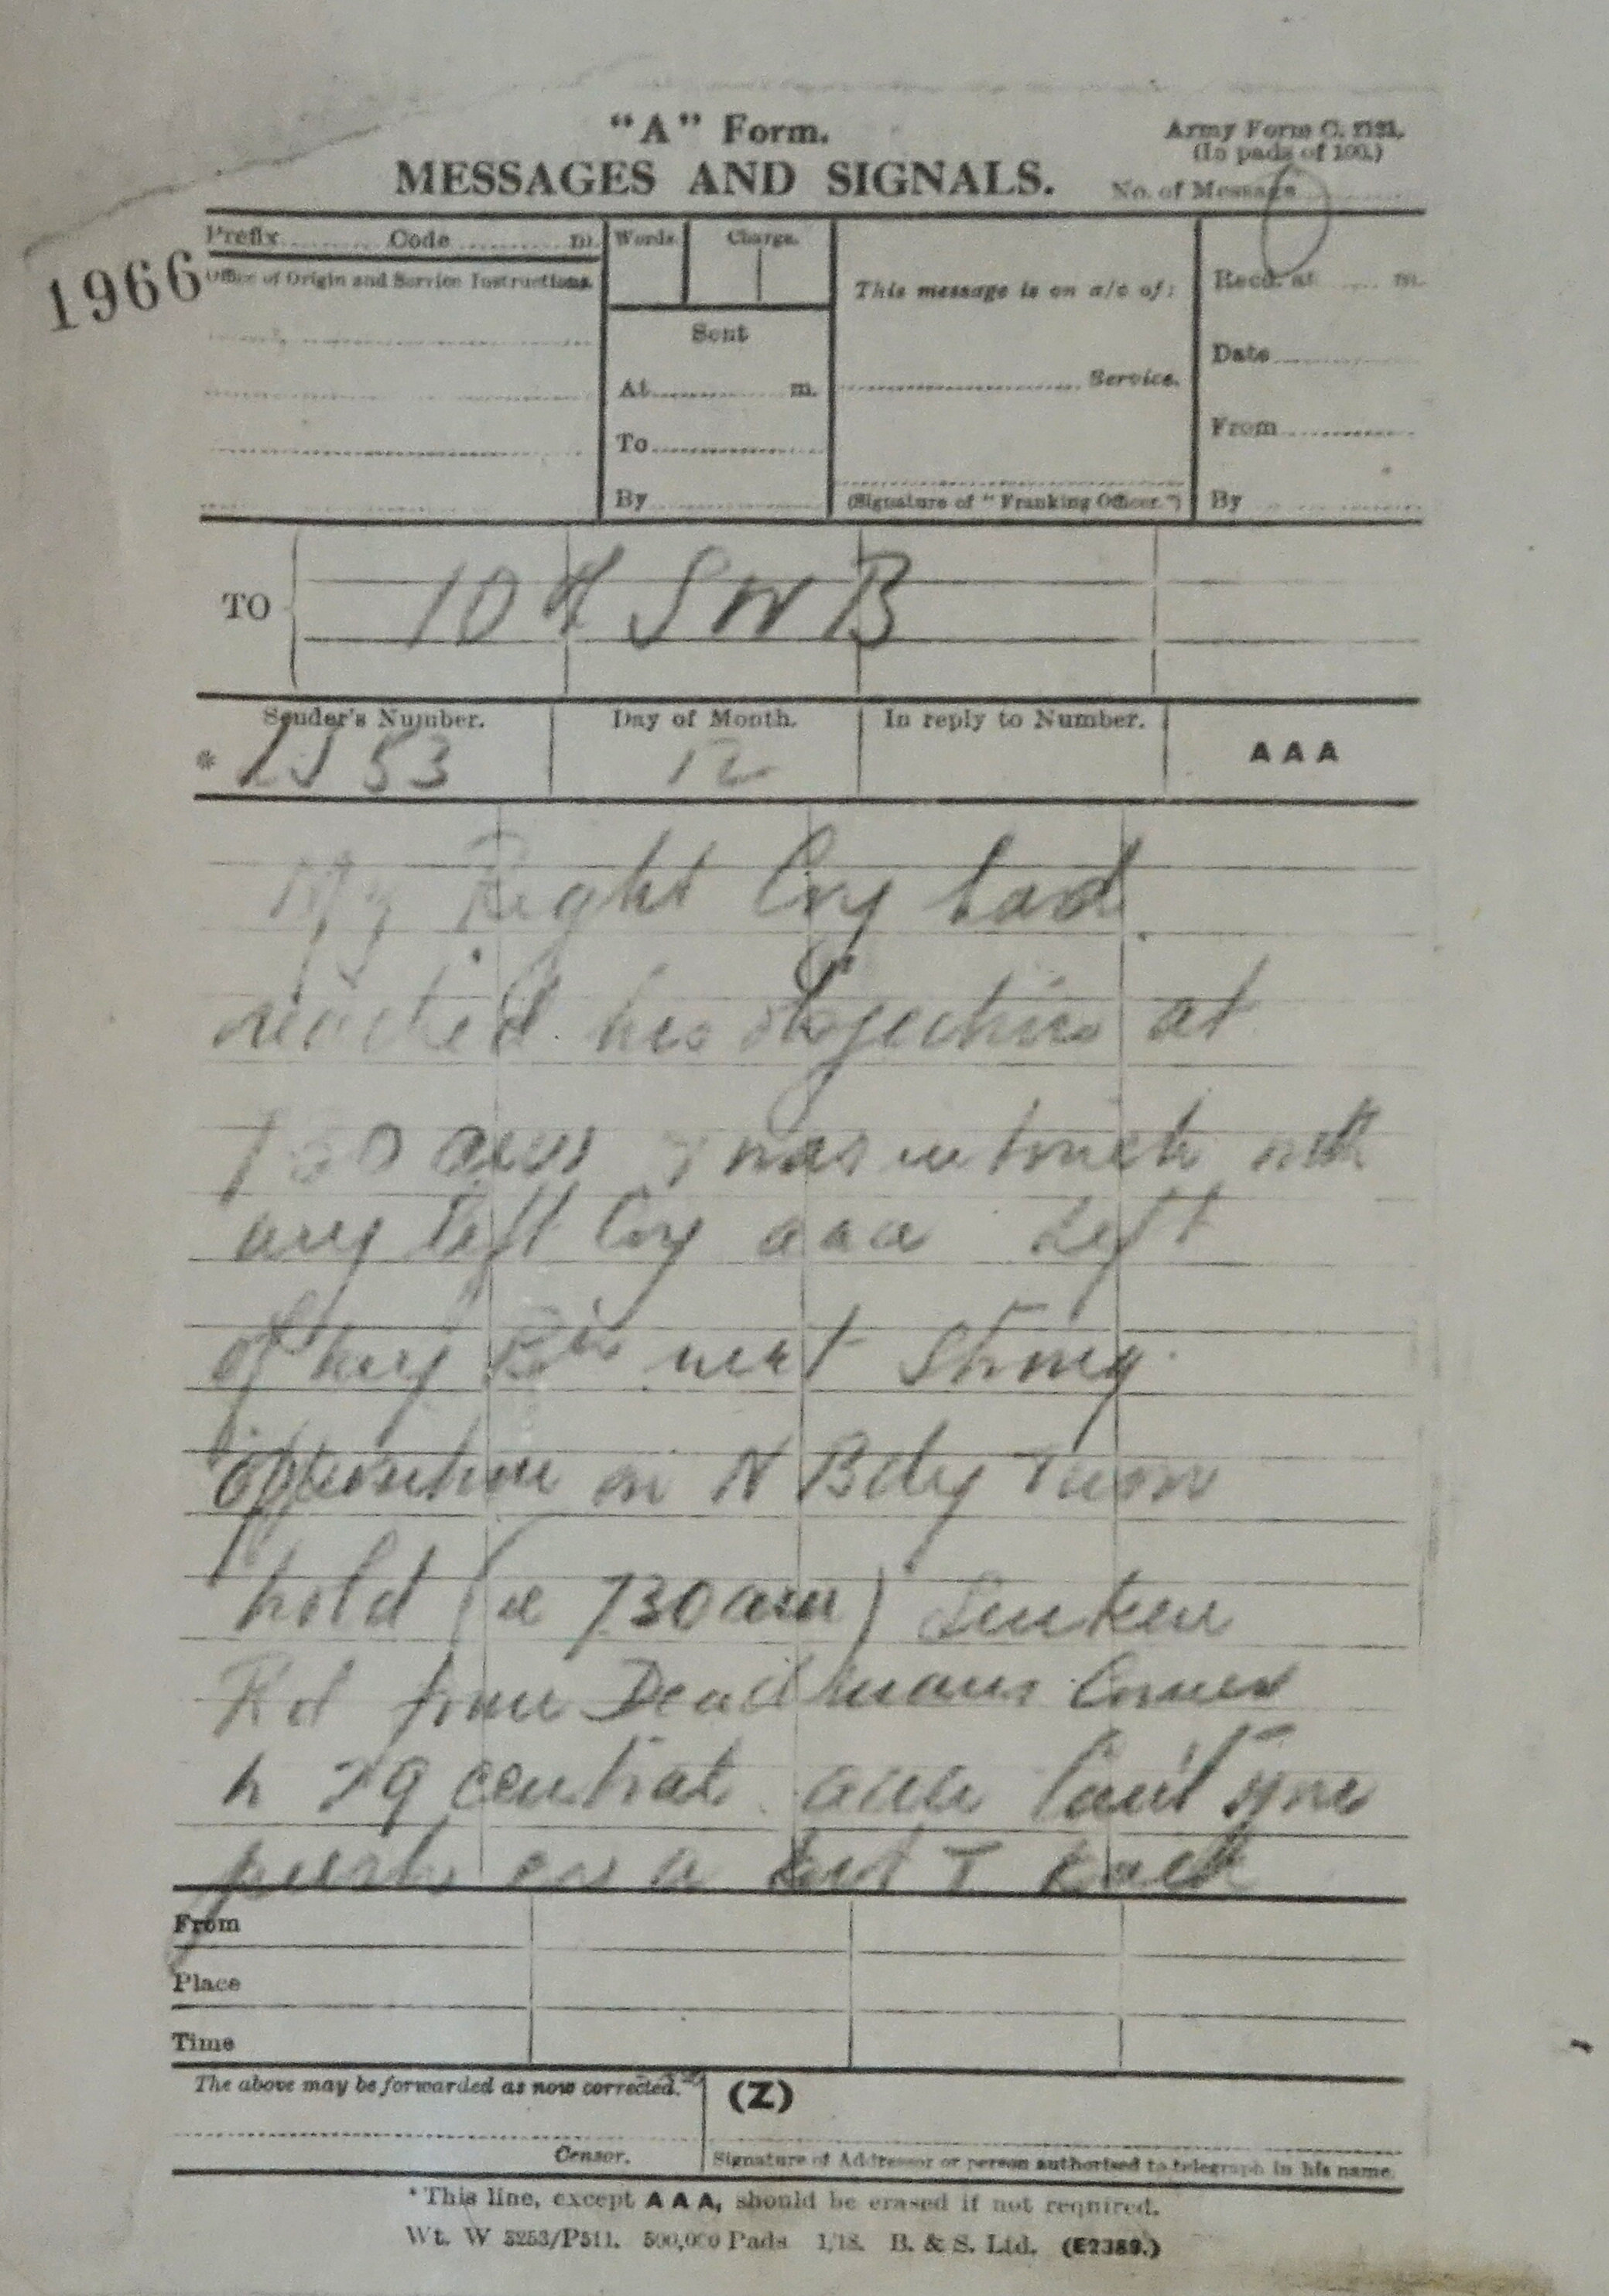 "A" Form.
MESSAGES AND SIGNALS.
Army Form C. 2121.
(In pads of 100.)
No. of Message
1966
Prefix Code m.
Office of Origin and Service Instructions.
Words Charge.
Sent
At m.
To
By
This message is on a/c of:
Service.
(Signature of "Franking Officer.")
Recd. at m.
Date
From
By
TO
10th SWB
Sender's Number.
Day of Month.
In reply to Number.
AAA
* LJ 53
12
My Right Coy had
reached his objective at
730 am & was in touch with
my left Coy aaa Left
of my Bn met strong
opposition on N Bdy & now
hold (ie 730 am) Sunken
Rd from Deadmans Corner
to 29 central aaa Can't you
push on a bit &
From
Place
Time
The above may be forwarded as now corrected.
(Z)
Censor.
Signature of Addressor or person authorised to telegraph in his name.
*This line, except AAA, should be erased if not required.
Wt. W 3253/P511. 500,000 Pads 1/18. B. & S. Ltd. (E2389.)